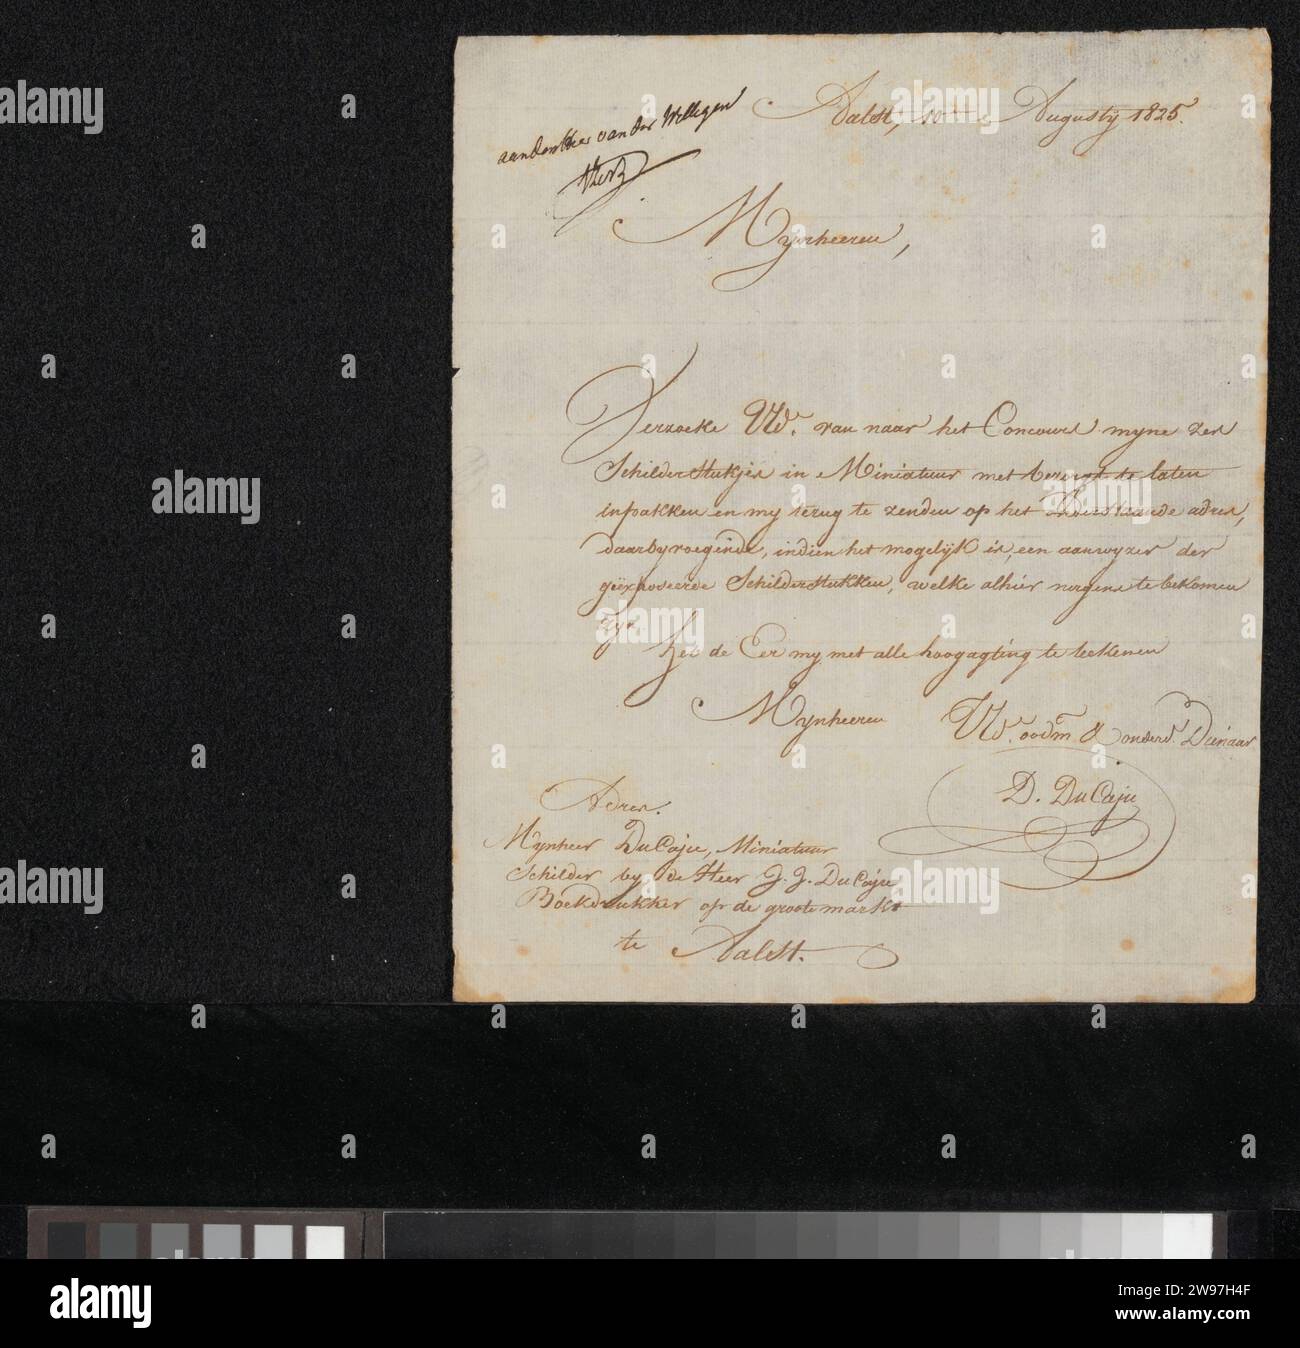 Aalst, 10 Augusty 1825.
aan den Heer van der Willigen
Mynheeren,
Verzoeke UEd. van naar het Concours myne zes
Schilderstukjes in Miniatuur met bezorgd te laten
inpakken en my terug te zenden op het Onderstaande adres,
daarbyvoegende, indien het mogelyk is, een aanwyzer der
geëxposeerde Schilderstukken, welke alhier nergens te bekomen
zyn.
Heb de Eer my met alle hoogagting te teekenen
Mynheeren
UEd. oodm. & onderd. Dienaar
D. DuCaju
Adres.
Mynheer DuCaju, Miniatuur
Schilder by de Heer J. J. DuCaju
Boekdrukker op de groote markt
te Aalst.
alamy
Image ID: 2W97H4F
www.alamy.com